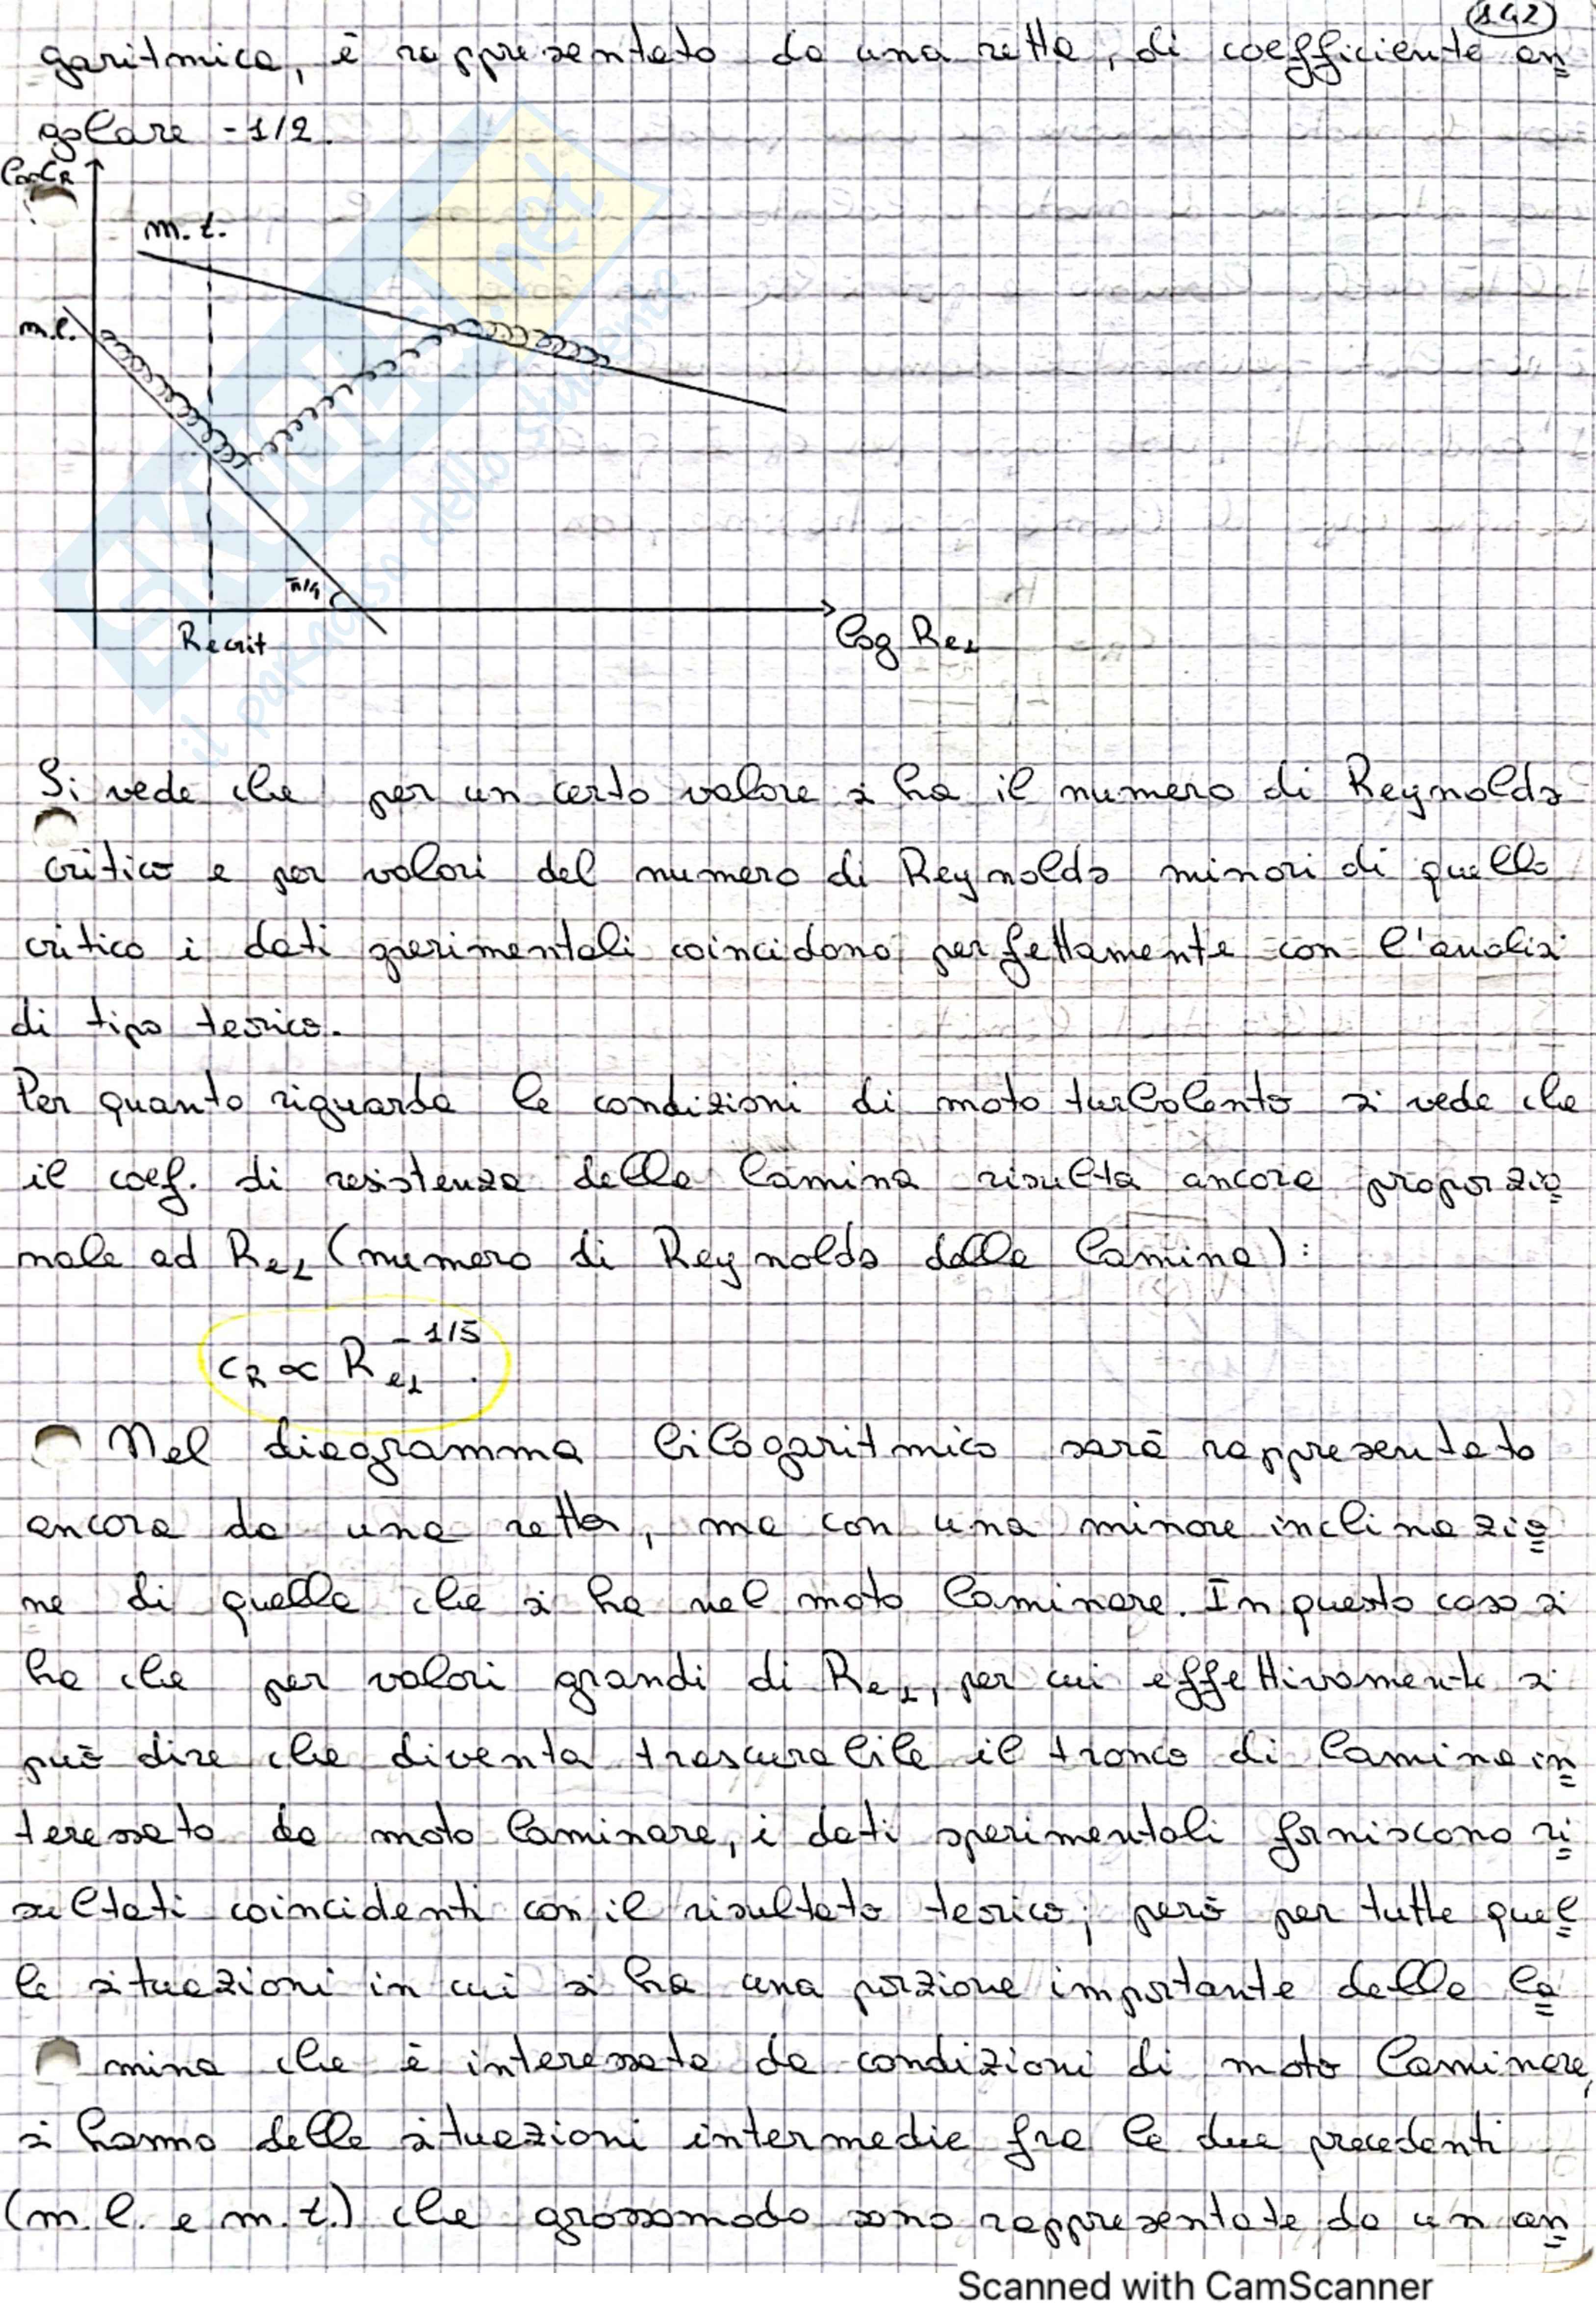 142
garitmica, è rappresentato da una retta, di coefficiente an
golare -1/2.
Log CR
m.t.
m.l.
π/4
Recrit
log ReL
SKUOLA.net
il paradiso dello studente
Si vede che per un certo valore si ha il numero di Reynolds
critico e per valori del numero di Reynolds minori di quello
critico i dati sperimentali coincidono perfettamente con l'analisi
di tipo teorico.
Per quanto riguarda le condizioni di moto turbolento si vede che
il coef. di resistenza della lamina risulta ancora proporzio
nale ad ReL (numero di Reynolds della lamina):
cR ∝ ReL^-1/5.
Nel diagramma bilogaritmico sarà rappresentato
ancora da una retta, ma con una minore inclinazio
ne di quella che si ha nel moto laminare. In questo caso si
ha che per valori grandi di ReL, per cui effettivamente si
può dire che diventa trascurabile il tronco di lamina in
teressato da moto laminare, i dati sperimentali forniscono ri
sultati coincidenti con il risultato teorico; però per tutte quel
le situazioni in cui si ha una porzione importante della la
mina che è interessata da condizioni di moto laminare,
si hanno delle situazioni intermedie fra le due precedenti
(m.l. e m.t.) che grossomodo sono rappresentate da un an
Scanned with CamScanner